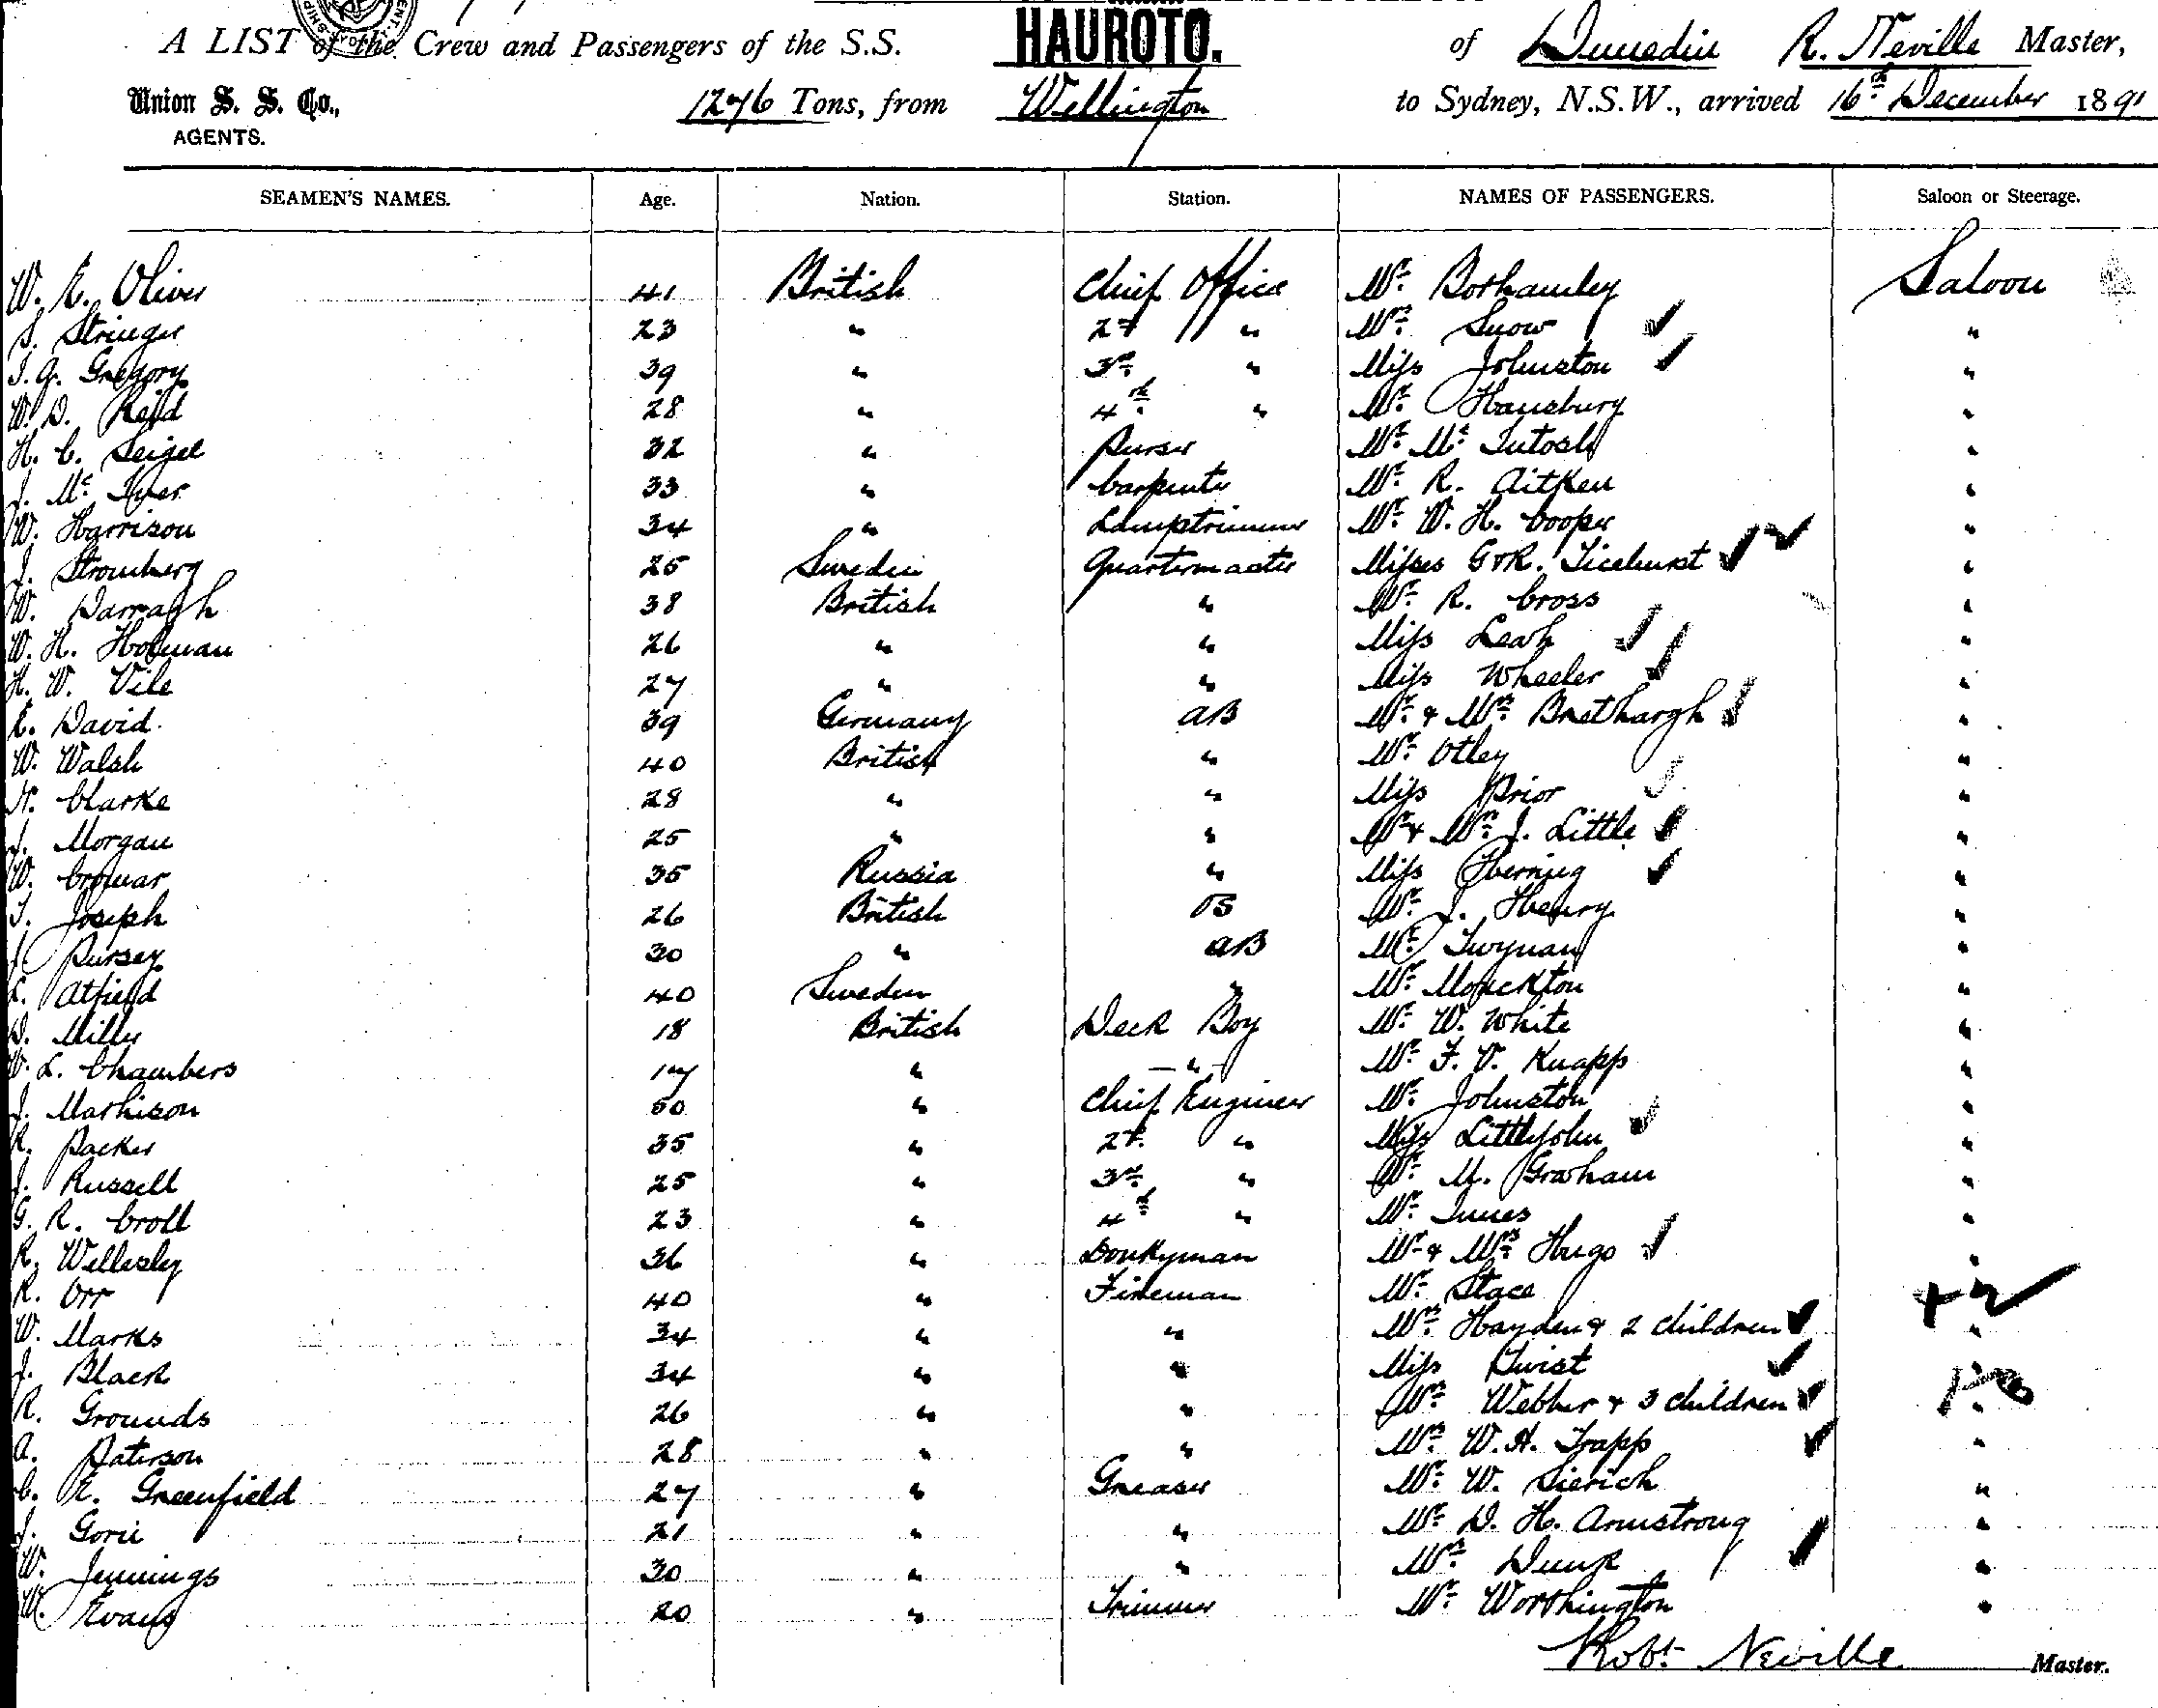 A LIST of the Crew and Passengers of the S.S. HAUROTO. of Dunedin R. Neville Master,
Union S. S. Co., AGENTS. 1276 Tons, from Wellington to Sydney, N.S.W., arrived 16th December 1891
SEAMEN'S NAMES. Age. Nation. Station. NAMES OF PASSENGERS. Saloon or Steerage.
W. E. Oliver 41 British Chief Officer Mr. Bothamley Saloon
S. Stringer 23 " 2d " Mrs. Snow "
J. G. Gregory 39 " 3rd " Miss Johnston "
W. D. Reid 28 " 4th " Mr. Hansbury "
H. C. Seigel 32 " Purser Mr. McIntosh "
J. McIver 33 " Carpenter Mr. R. Aitken "
W. Harrison 34 " Lamptrimmer Mr. W. H. Cooper "
J. Stromberg 25 Sweden Quartermaster Misses G & R. Ticehurst "
W. Darragh 38 British " Mr. R. Cross "
W. H. Holman 26 " " Miss Leah "
H. W. Vile 27 " " Miss Wheeler "
E. David 39 Germany AB Mr. & Mrs. Brethargh "
W. Walsh 40 British " Mr. Otley "
H. Clarke 28 " " Miss Prior "
J. Morgan 25 " " Mr. & Mrs. J. Little "
W. Cromar 35 Russia " Miss Herring "
J. Joseph 26 British OS Mr. J. Henry "
J. Pursey 30 " AB Mr. Twynan "
L. Atfield 40 Sweden " Mr. Monckton "
D. Miller 18 British Deck Boy Mr. W. White "
W. L. Chambers 17 " " Mr. F. V. Knapp "
J. Mathison 50 " Chief Engineer Mr. Johnston "
R. Packer 35 " 2d " Miss Littlejohn "
J. Russell 25 " 3rd " Mr. M. Graham "
G. R. Croll 23 " 4th " Mr. Innes "
R. Wellesley 36 " Donkyman Mr. & Mrs. Hugo "
R. Orr 40 " Fireman Mr. Stace
W. Marks 34 " " Mrs. Hayden & 2 children "
J. Black 34 " " Miss Twist
R. Grounds 26 " " Mrs. Webber & 3 children "
A. Paterson 28 " " Mrs. W. H. Trapp "
C. E. Greenfield 27 " Greaser Mr. W. Sierich "
J. Gorie 21 " " Mr. D. H. Armstrong "
W. Jennings 30 " " Mrs. Dunk "
W. Evans 20 " Trimmer Mr. Worthington "
Robt. Neville Master.